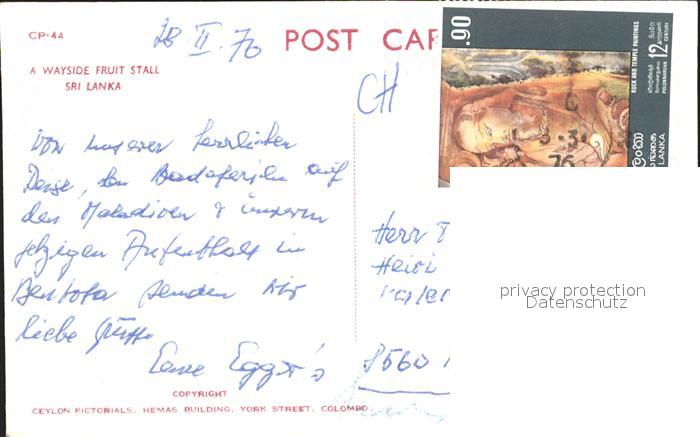 CP-44
28 II. 76
POST CAR
A WAYSIDE FRUIT STALL
SRI LANKA
CH
.90
ROCK AND TEMPLE PAINTINGS
12
CENTURY
POLONNARUWA
3.3.
76
LANKA
von unserer herrlichen
Reise, den Badeferien auf
den Malediven & unserm
jetzigen Aufenthalt in
Bentota senden wir
liebe Grüsse
Eure Egger's
Herr
Heidi
8560
privacy protection
Datenschutz
COPYRIGHT
CEYLON PICTORIALS, HEMAS BUILDING, YORK STREET, COLOMBO.